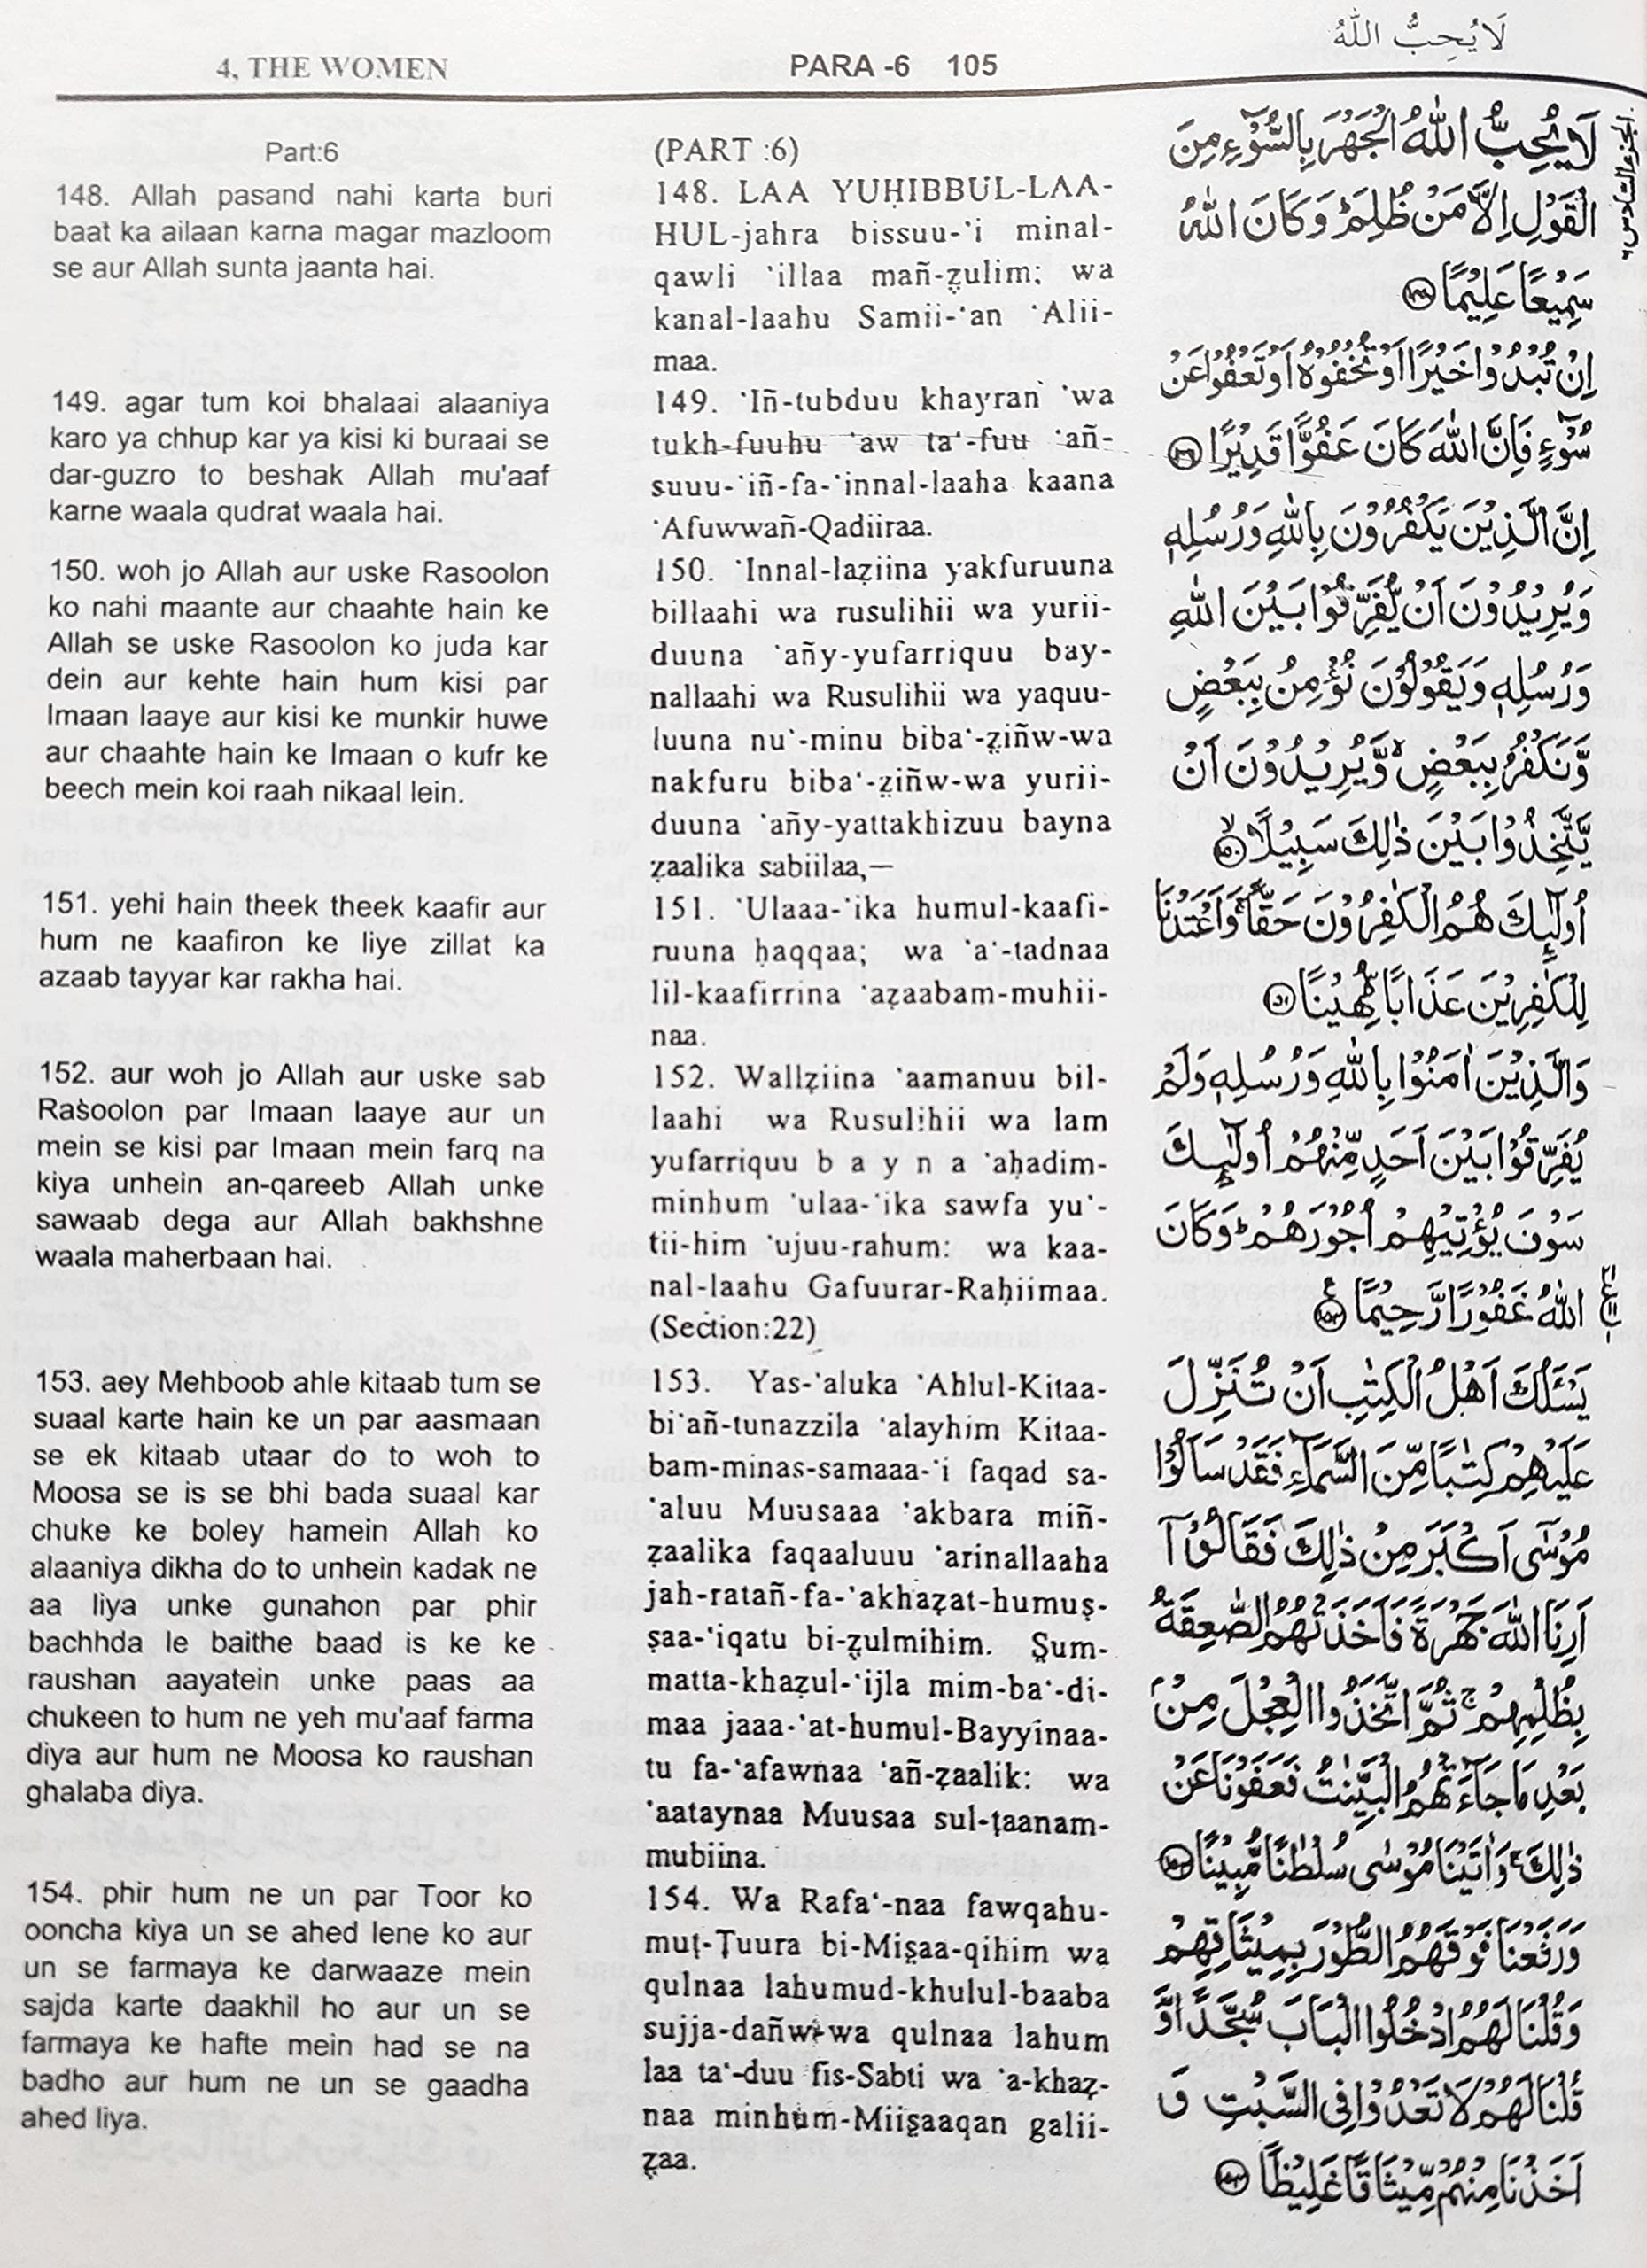 4, THE WOMEN
PARA -6 105
لَا يُحِبُّ اللهُ
Part:6
148. Allah pasand nahi karta buri
baat ka ailaan karna magar mazloom
se aur Allah sunta jaanta hai.
149. agar tum koi bhalaai alaaniya
karo ya chhup kar ya kisi ki buraai se
dar-guzro to beshak Allah mu'aaf
karne waala qudrat waala hai.
150. woh jo Allah aur uske Rasoolon
ko nahi maante aur chaahte hain ke
Allah se uske Rasoolon ko juda kar
dein aur kehte hain hum kisi par
Imaan laaye aur kisi ke munkir huwe
aur chaahte hain ke Imaan o kufr ke
beech mein koi raah nikaal lein.
151. yehi hain theek theek kaafir aur
hum ne kaafiron ke liye zillat ka
azaab tayyar kar rakha hai.
152. aur woh jo Allah aur uske sab
Rasoolon par Imaan laaye aur un
mein se kisi par Imaan mein farq na
kiya unhein an-qareeb Allah unke
sawaab dega aur Allah bakhshne
waala maherbaan hai.
153. aey Mehboob ahle kitaab tum se
suaal karte hain ke un par aasmaan
se ek kitaab utaar do to woh to
Moosa se is se bhi bada suaal kar
chuke ke boley hamein Allah ko
alaaniya dikha do to unhein kadak ne
aa liya unke gunahon par phir
bachhda le baithe baad is ke ke
raushan aayatein unke paas aa
chukeen to hum ne yeh mu'aaf farma
diya aur hum ne Moosa ko raushan
ghalaba diya.
154. phir hum ne un par Toor ko
ooncha kiya un se ahed lene ko aur
un se farmaya ke darwaaze mein
sajda karte daakhil ho aur un se
farmaya ke hafte mein had se na
badho aur hum ne un se gaadha
ahed liya.
(PART :6)
148. LAA YUḤIBBUL-LAA-
HUL-jahra bissuu-‘i minal-
qawli ‘illaa mañ-ẓulim; wa
kanal-laahu Samii-‘an ‘Alii-
maa.
149. ‘Iñ-tubduu khayran ‘wa
tukh-fuuhu ‘aw ta‘-fuu ‘añ-
suuu-‘iñ-fa-‘innal-laaha kaana
‘Afuwwañ-Qadiiraa.
150. ‘Innal-laẓiina yakfuruuna
billaahi wa rusulihii wa yurii-
duuna ‘añy-yufarriquu bay-
nallaahi wa Rusulihii wa yaquu-
luuna nu‘-minu biba‘-ẓiñw-wa
nakfuru biba‘-ẓiñw-wa yurii-
duuna ‘añy-yattakhizuu bayna
ẓaalika sabiilaa,—
151. ‘Ulaaa-‘ika humul-kaafi-
ruuna ḥaqqaa; wa ‘a‘-tadnaa
lil-kaafirrina ‘aẓaabam-muhii-
naa.
152. Wallẓiina ‘aamanuu bil-
laahi wa Rusulihii wa lam
yufarriquu b a y n a ‘aḥadim-
minhum ‘ulaa-‘ika sawfa yu‘-
tii-him ‘ujuu-rahum: wa kaa-
nal-laahu Gafuurar-Raḥiimaa.
(Section:22)
153. Yas-‘aluka ‘Ahlul-Kitaa-
bi‘añ-tunazzila ‘alayhim Kitaa-
bam-minas-samaaa-‘i faqad sa-
‘aluu Muusaaa ‘akbara miñ-
ẓaalika faqaaluuu ‘arinallaaha
jah-ratañ-fa-‘akhaẓat-humuṣ-
ṣaa-‘iqatu bi-ẓulmihim. Ṣum-
matta-khaẓul-‘ijla mim-ba‘-di-
maa jaaa-‘at-humul-Bayyinaa-
tu fa-‘afawnaa ‘añ-ẓaalik: wa
‘aataynaa Muusaa sul-ṭaanam-
mubiina.
154. Wa Rafa‘-naa fawqahu-
muṭ-Ṭuura bi-Miṣaa-qihim wa
qulnaa lahumud-khulul-baaba
sujja-dañw-wa qulnaa lahum
laa ta‘-duu fis-Sabti wa ‘a-khaẓ-
naa minhum-Miiṣaaqan galii-
ẓaa.
لَا يُحِبُّ اللهُ الْجَهْرَ بِالسُّوْٓءِ مِنَ
الْقَوْلِ اِلَّا مَنْ ظُلِمَ ؕ وَكَانَ اللهُ
سَمِيْعًا عَلِيْمًا ۝۱۴۸
اِنْ تُبْدُوْا خَيْرًا اَوْ تُخْفُوْهُ اَوْ تَعْفُوْا عَنْ
سُوْٓءٍ فَاِنَّ اللهَ كَانَ عَفُوًّا قَدِيْرًا ۝۱۴۹
اِنَّ الَّذِيْنَ يَكْفُرُوْنَ بِاللهِ وَرُسُلِهٖ
وَيُرِيْدُوْنَ اَنْ يُّفَرِّقُوْا بَيْنَ اللهِ
وَرُسُلِهٖ وَيَقُوْلُوْنَ نُؤْمِنُ بِبَعْضٍ
وَّنَكْفُرُ بِبَعْضٍ ۙ وَّيُرِيْدُوْنَ اَنْ
يَّتَّخِذُوْا بَيْنَ ذٰلِكَ سَبِيْلًا ۙ۝۱۵۰
اُولٰٓئِكَ هُمُ الْكٰفِرُوْنَ حَقًّا ۚ وَاَعْتَدْنَا
لِلْكٰفِرِيْنَ عَذَابًا مُّهِيْنًا ۝۱۵۱
وَالَّذِيْنَ اٰمَنُوْا بِاللهِ وَرُسُلِهٖ وَلَمْ
يُفَرِّقُوْا بَيْنَ اَحَدٍ مِّنْهُمْ اُولٰٓئِكَ
سَوْفَ يُؤْتِيْهِمْ اُجُوْرَهُمْ ؕ وَكَانَ
اللهُ غَفُوْرًا رَّحِيْمًا ۝۱۵۲
يَسْـَٔلُكَ اَهْلُ الْكِتٰبِ اَنْ تُنَزِّلَ
عَلَيْهِمْ كِتٰبًا مِّنَ السَّمَآءِ فَقَدْ سَاَلُوْا
مُوْسٰٓى اَكْبَرَ مِنْ ذٰلِكَ فَقَالُوْٓا
اَرِنَا اللهَ جَهْرَةً فَاَخَذَتْهُمُ الصّٰعِقَةُ
بِظُلْمِهِمْ ۚ ثُمَّ اتَّخَذُوا الْعِجْلَ مِنْۢ
بَعْدِ مَا جَآءَتْهُمُ الْبَيِّنٰتُ فَعَفَوْنَا عَنْ
ذٰلِكَ ۚ وَاٰتَيْنَا مُوْسٰى سُلْطٰنًا مُّبِيْنًا ۝۱۵۳
وَرَفَعْنَا فَوْقَهُمُ الطُّوْرَ بِمِيْثَاقِهِمْ
وَقُلْنَا لَهُمُ ادْخُلُوا الْبَابَ سُجَّدًا وَّ
قُلْنَا لَهُمْ لَا تَعْدُوْا فِى السَّبْتِ وَ
اَخَذْنَا مِنْهُمْ مِّيْثَاقًا غَلِيْظًا ۝۱۵۴
الجزء السادس ٦